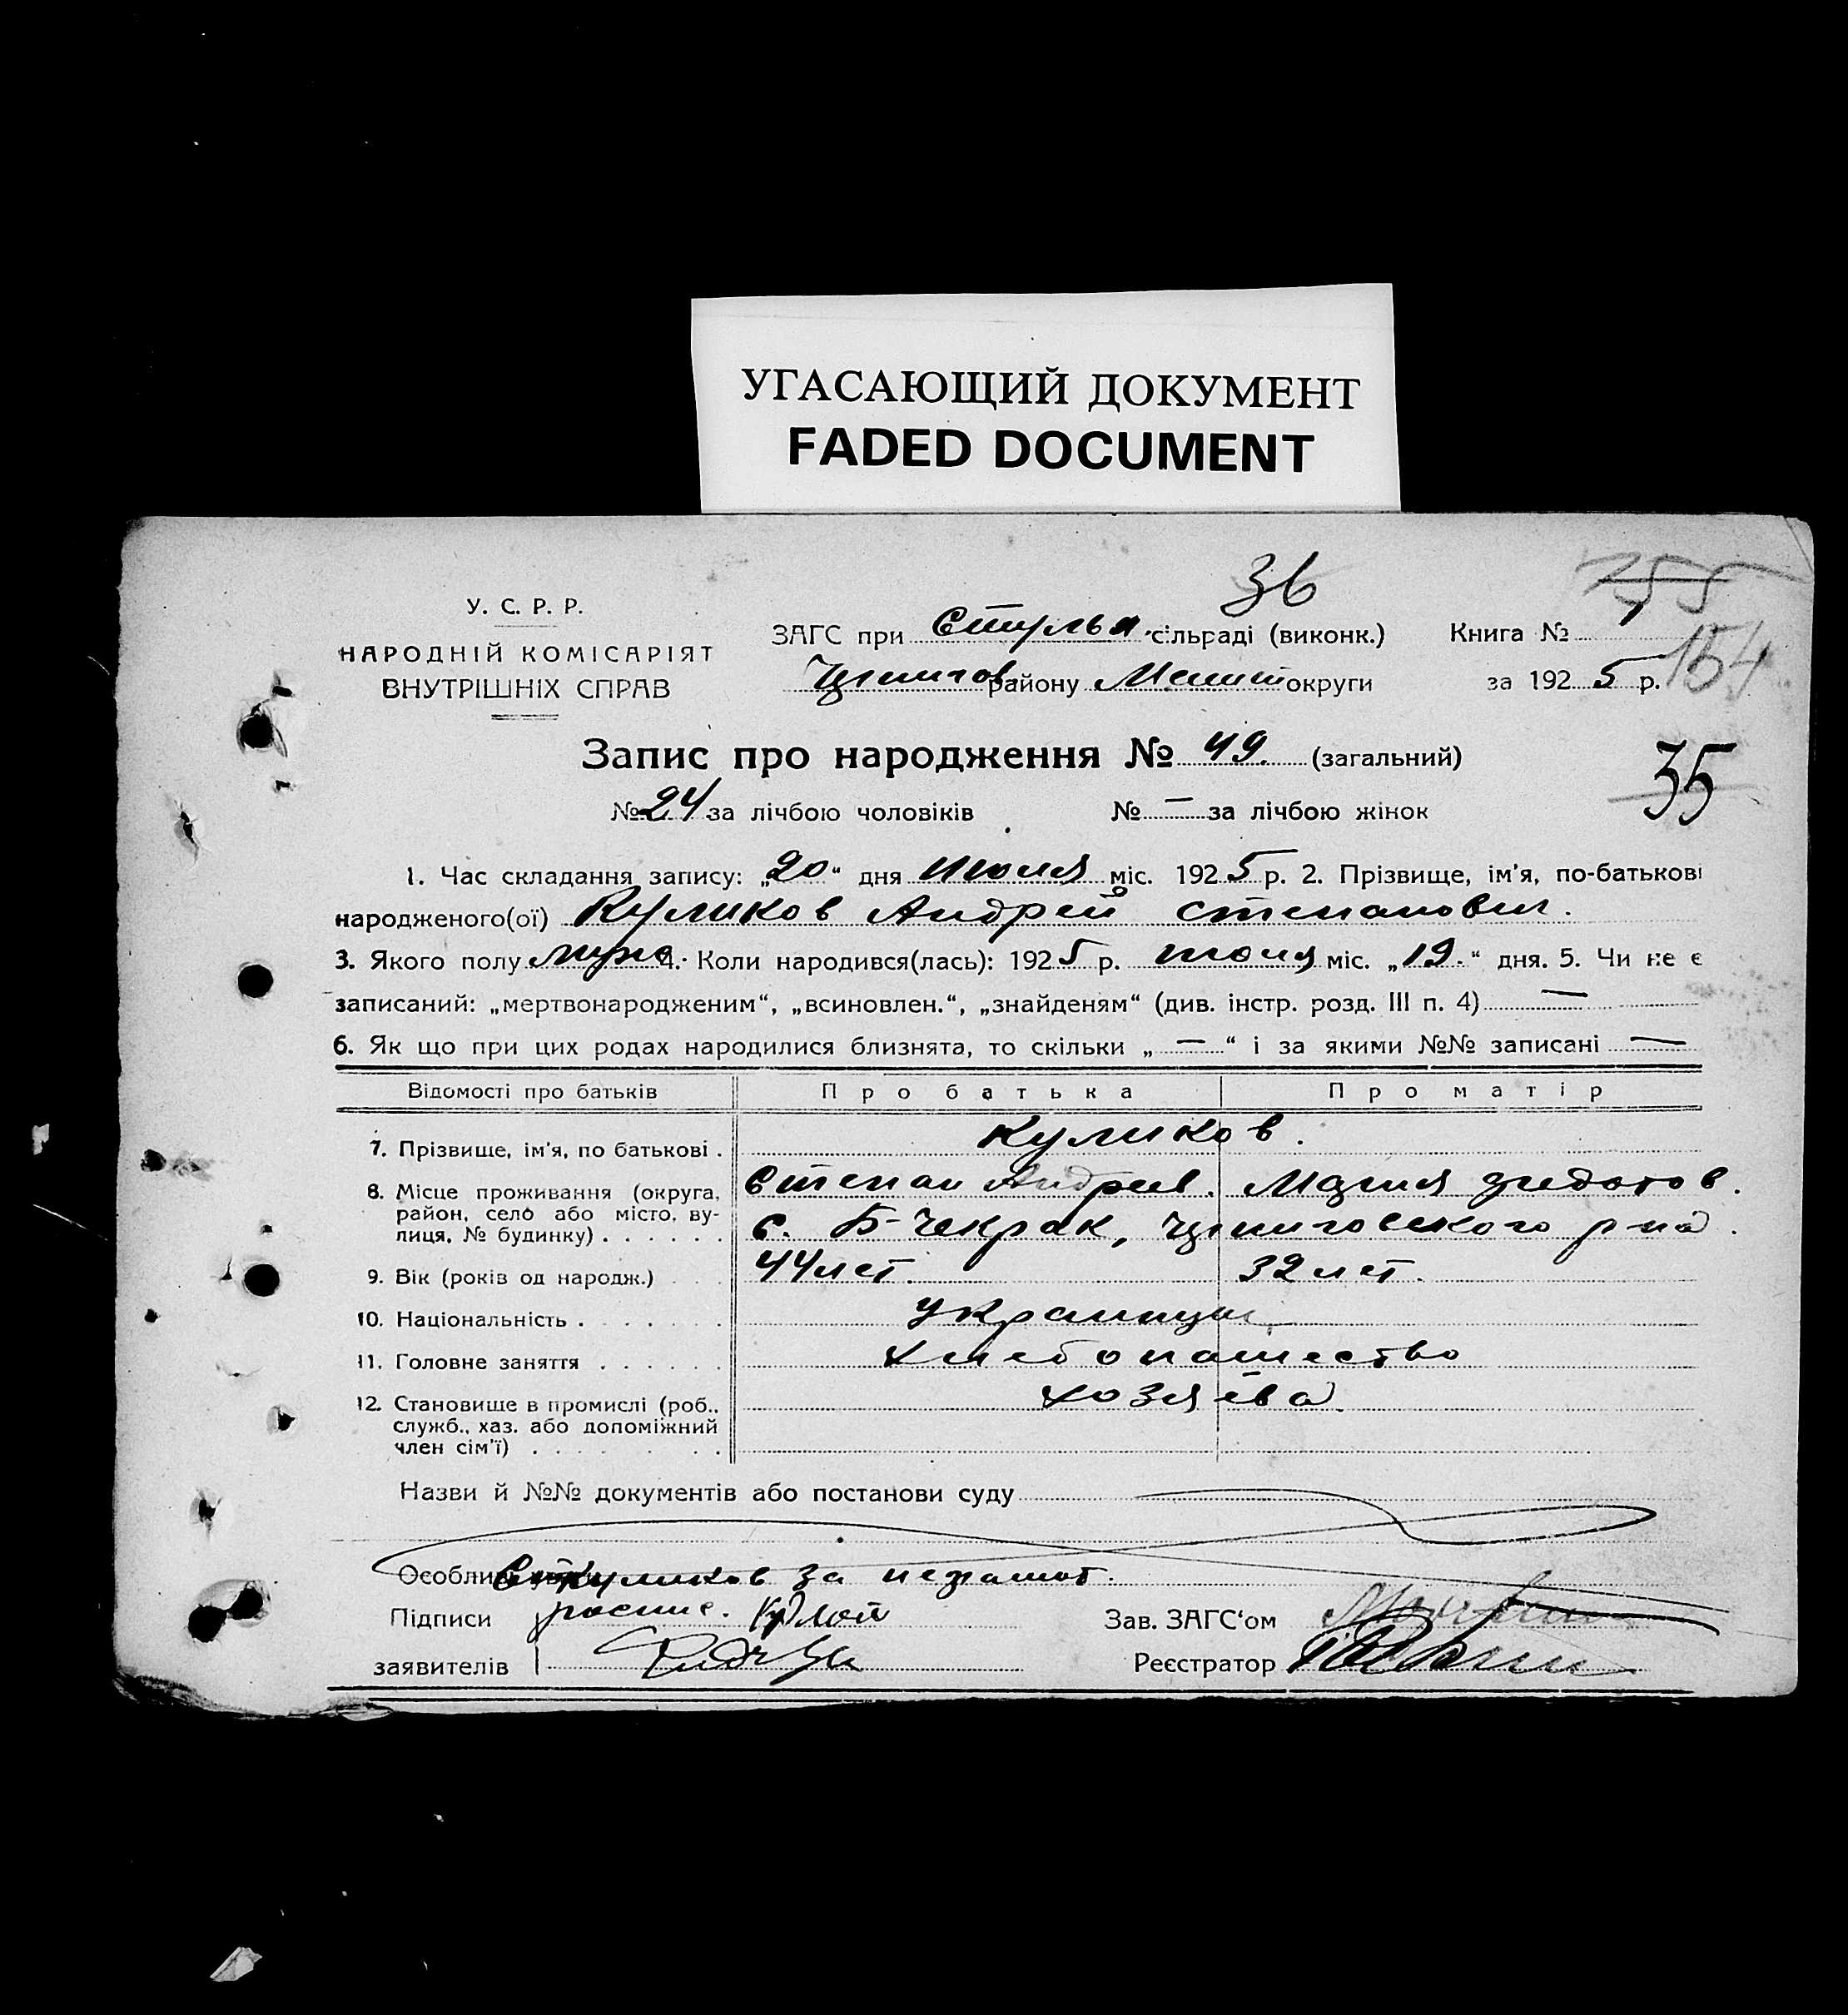 УГАСАЮЩИЙ ДОКУМЕНТ
FADED DOCUMENT
36
755
У. С. Р. Р.
НАРОДНІЙ КОМІСАРІЯТ
ВНУТРІШНІХ СПРАВ
ЗАГС при сільраді (виконк.)
Книга № 1
154
району округи
за 1925 р.
Запис про народження № 49. (загальний)
35
№ 24 за лічбою чоловіків № — за лічбою жінок
1. Час складання запису: „20“ дня июля міс. 1925 р. 2. Прізвище, ім'я, по-батькові
народженого(ої) Куликов Андрей Степанович.
3. Якого полу муж. 4. Коли народився(лась): 1925 р. июля міс. „19.“ дня. 5. Чи не є
записаний: „мертвонародженим“, „всиновлен.“, „знайденям“ (див. інстр. розд. III п. 4) —
6. Як що при цих родах народилися близнята, то скільки „ — “ і за якими №№ записані —
Відомості про батьків Про батька Про матір
7. Прізвище, ім'я, по батькові . Куликов.
Степан Андреев. Мария Федотов.
8. Місце проживання (округа, район, село або місто, вулиця, № будинку) . . . . . . с. Б-Чекрак, р-на.
9. Вік (років од народж.) . . . 44 лет. 32 лет.
10. Національність . . . . . . . украинцы
11. Головне заняття . . . . . . хлебопашество
12. Становище в промислі (роб., служб., хаз. або допоміжний член сім'ї) . . . . . . . . хозяева
Назви й №№ документів або постанови суду
Особлив Куликов за неграмот.
Підписи роспис. Зав. ЗАГС'ом
заявителів Реєстратор